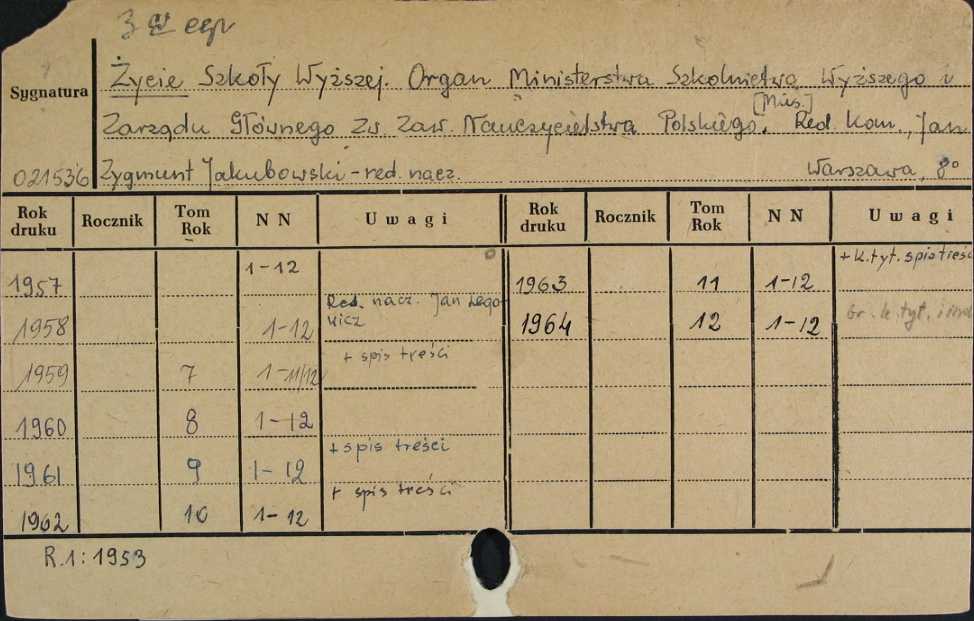 3 egz
Sygnatura
Życie Szkoły Wyższej. Organ Ministerstwa Szkolnictwa Wyższego i
[Mies.]
Zarządu Głównego Zw Zaw. Nauczycielstwa Polskiego. Red. kom., Jan
021536 Zygmunt Jakubowski - red. nacz. Warszawa, 8°
Rok druku Rocznik Tom Rok N N Uwagi Rok druku Rocznik Tom Rok N N Uwagi
1957 1-12 1963 11 1-12 + k. tyt. spis treści
1958 1-12 Red. nacz. Jan Legowicz 1964 12 1-12 k. tyt. i
1959 7 1-11/12 + spis treści
1960 8 1-12
1961 9 1-12 + spis treści
1962 10 1-12 + spis treści
R.1: 1953